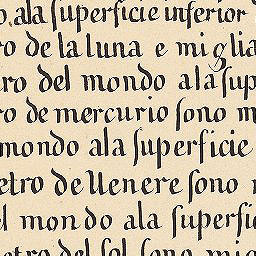 o. ala ſuperficie inferior
ro de la luna e miglia
ro del mondo ala ſup
ro de mercurio ſono m
mondo ala ſuperficie
etro de Uenere ſono
l mondo ala ſuperfi
etro del ſol ſono mig